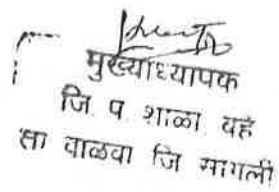 मुख्याध्यापक
जि. प. शाळा. वहे
ता वाळवा जि सांगली